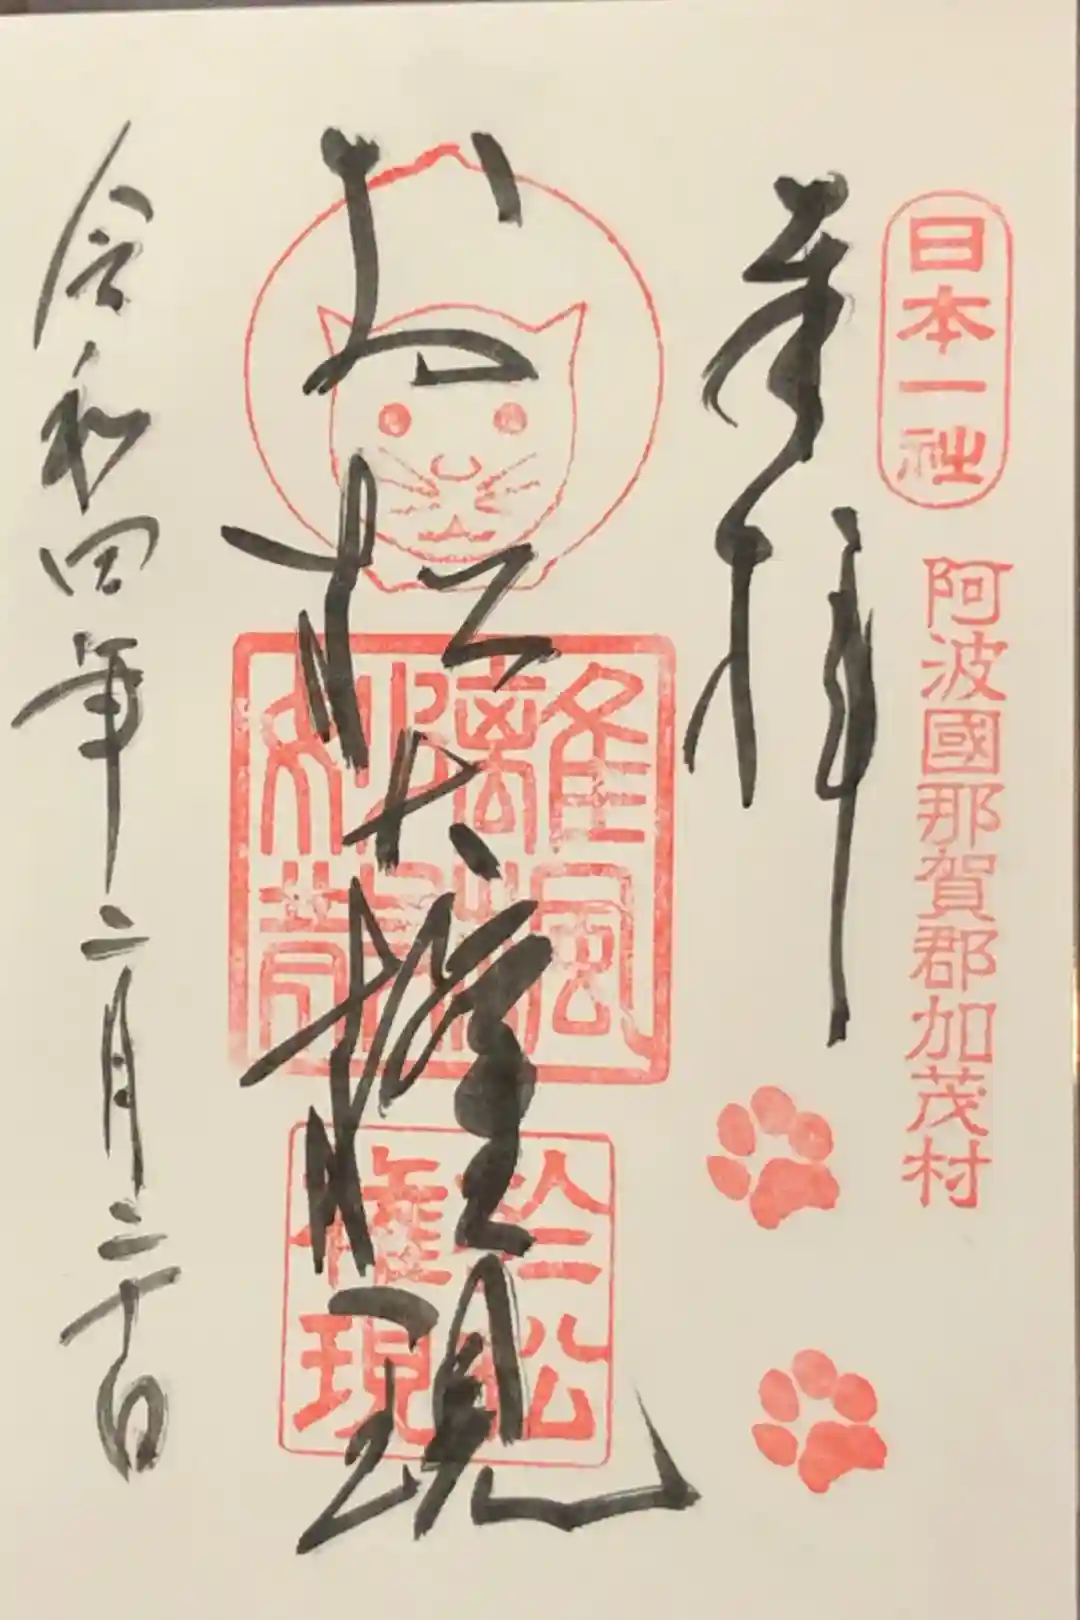 日本一社
阿波國那賀郡加茂村
奉拝
於松大権現
於松
権現
令和四年二月二十日